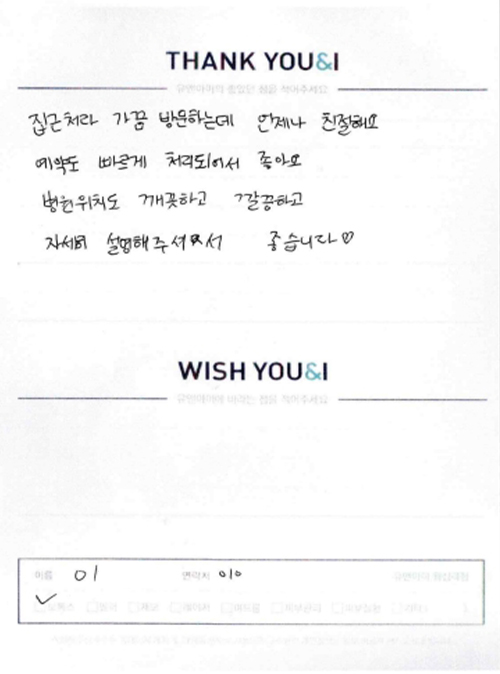 THANK YOU&I
유앤아이의 좋았던 점을 적어주세요
집근처라 가끔 방문하는데 언제나 친절해요
예약도 빠르게 처리되어서 좋아요
병원위치도 깨끗하고 깔끔하고
자세히 설명해주셔서 좋습니다♡
WISH YOU&I
유앤아이에 바라는 점을 적어주세요
이름 이 연락처 010
✓
보톡스 필러 제모 레이저 여드름 피부관리 기타( )